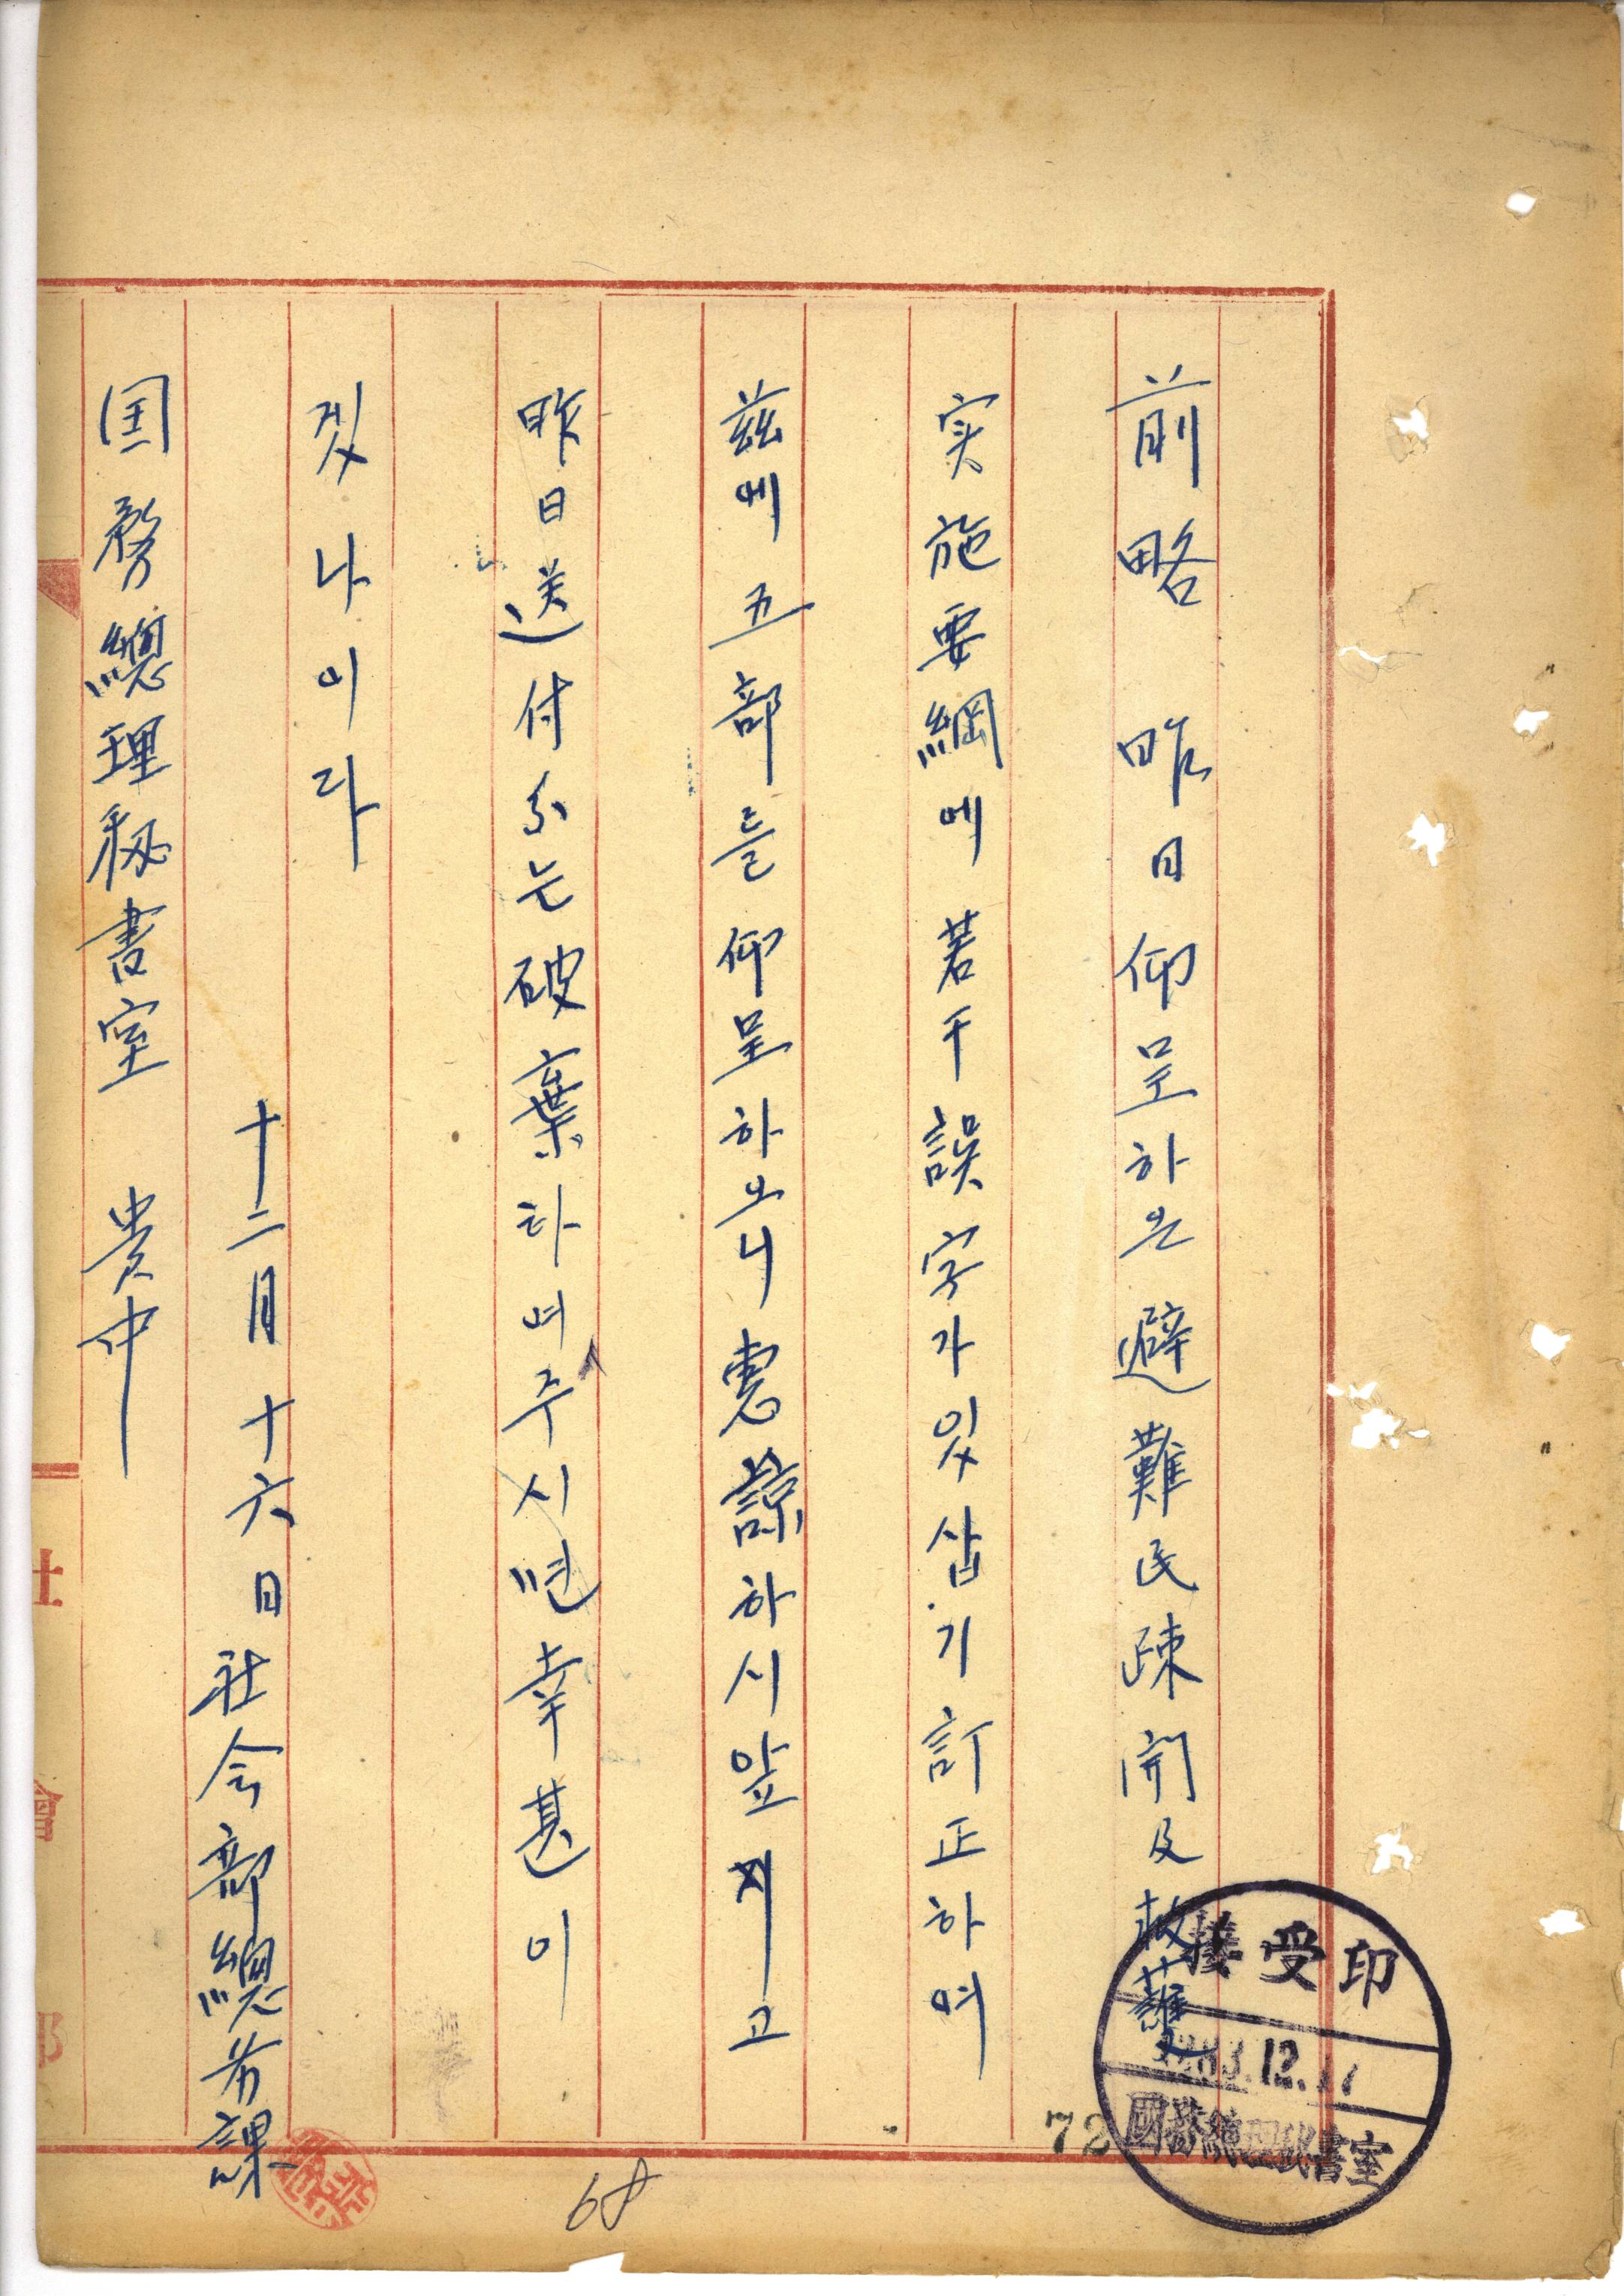 前略 昨日仰呈하온 避難民疎開及救護
実施要綱에 若干 誤字가 있삽기 訂正하여
玆에 五部를 仰呈하오니 惠諒하시앞고
昨日送付分는 破棄하여주시면 幸甚이
겠나이다
十二月十六日 社会部總務課
国務總理秘書室 貴中
接受印
12.17
國務總理秘書室
72
68
社
會
部